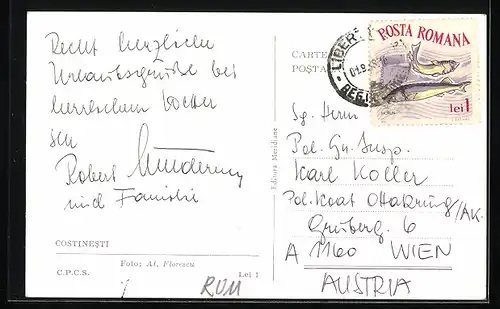 Recht herzliche
Urlaubsgrüße bei
herrlichem Wetter
Robert
und Familie
COSTINEȘTI
Foto: Al. Florescu
C.P.C.S.
Lei 1
RUM
Editura Meridiane
CARTE
POȘTA
POSTA ROMANA
lei 1
Sg. Herrn
Pol. Gr. Insp.
Karl Koller
Pol. Koat Ottakring/AK.
Grubergr. 6
A 1160 WIEN
AUSTRIA